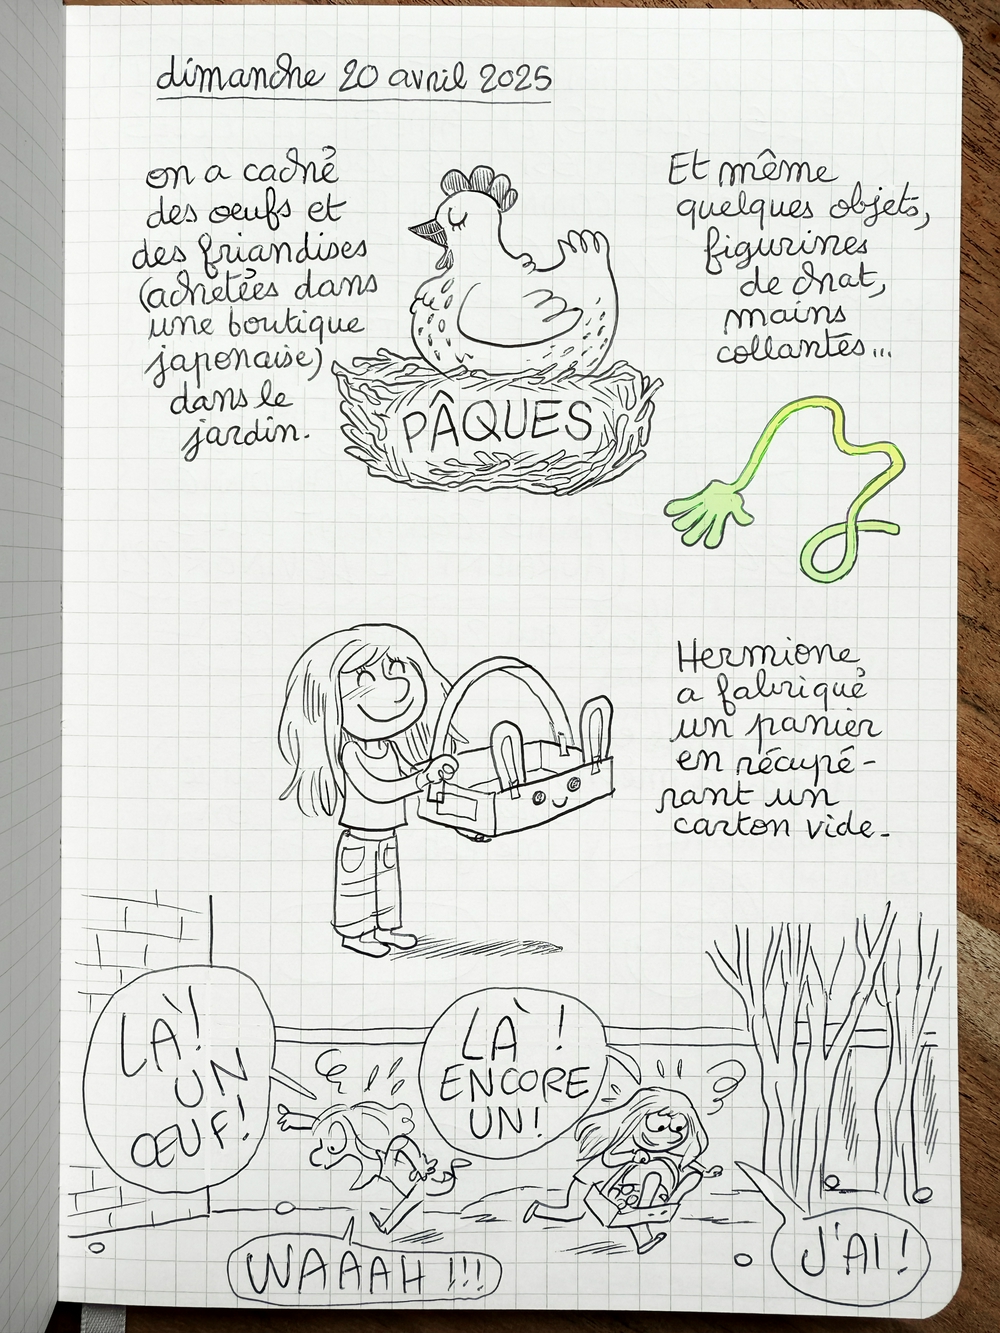 dimanche 20 avril 2025
on a caché
des oeufs et
des friandises
(achetées dans
une boutique
japonaise)
dans le
jardin.
PÂQUES
Et même
quelques objets,
figurines
de chat,
mains
collantes...
Hermione
a fabriqué
un panier
en récupé-
rant un
carton vide.
LÀ!
UN
ŒUF!
LÀ !
ENCORE
UN!
WAAAH !!!
J'AI !